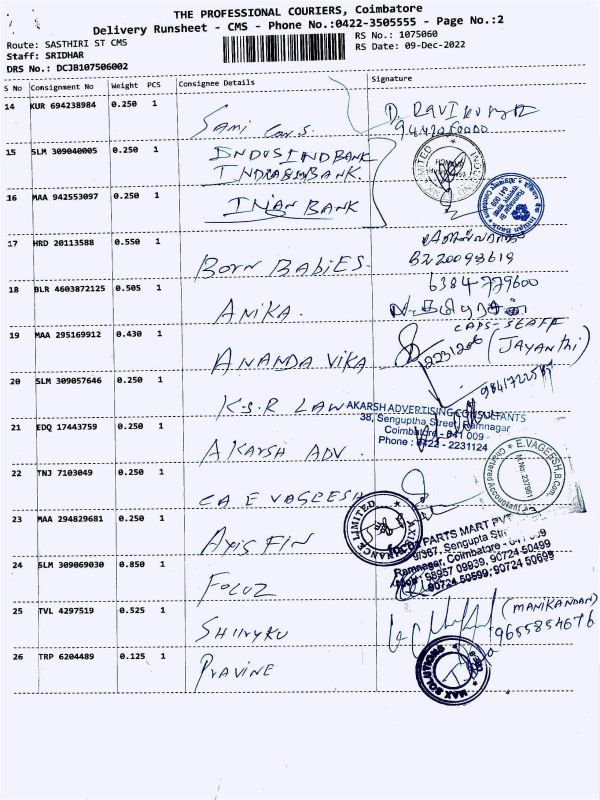 THE PROFESSIONAL COURIERS, Coimbatore
Delivery Runsheet - CMS - Phone No.:0422-3505555 - Page No.:2
Route: SASTHIRI ST CMS
Staff: SRIDHAR
DRS No.: DCJB107506002
RS No.: 1075060
RS Date: 09-Dec-2022
S No Consignment No Weight PCS Consignee Details Signature
14 KUR 694238984 0.250 1
Sami Cons. D. RAVI KUMAR
15 SLM 309040005 0.250 1
INDUSINDBANK
BANK.
16 MAA 942553097 0.250 1
BANK
17 HRD 20113588 0.550 1
BORN BABIES.
18 BLR 4603872125 0.505 1
6384779600
ANIKA.
19 MAA 295169912 0.430 1
CAPS-STAFF
ANANDA VIKA (JAYANTHI)
20 SLM 309057646 0.250 1
K.S.R LAW
AKARSH ADVERTISING CONSULTANTS
38, Senguptha Street, Ramnagar
Coimbatore - 641 009
Phone : 0422 - 2231124
21 EDQ 17443759 0.250 1
AKARSH ADV
22 TNJ 7103049 0.250 1
CA E VAGEESH
E.VAGEESH,B.Com.
Chartered Accountant
M.No. 237961
23 MAA 294829681 0.250 1
AXIS FIN
AXIS FINANCE LIMITED
24 SLM 309069030 0.850 1
FOCUZ
PARTS MART PVT
9/367, Sengupta Str
Ramnagar, Coimbatore
98957 09939, 90724 50499
90724 50599, 90724 50699
25 TVL 4297519 0.525 1
SHINYKU
(MANIKANDAN)
9655854676
26 TRP 6204489 0.125 1
PRAVINE
MAX SOLUTIONS